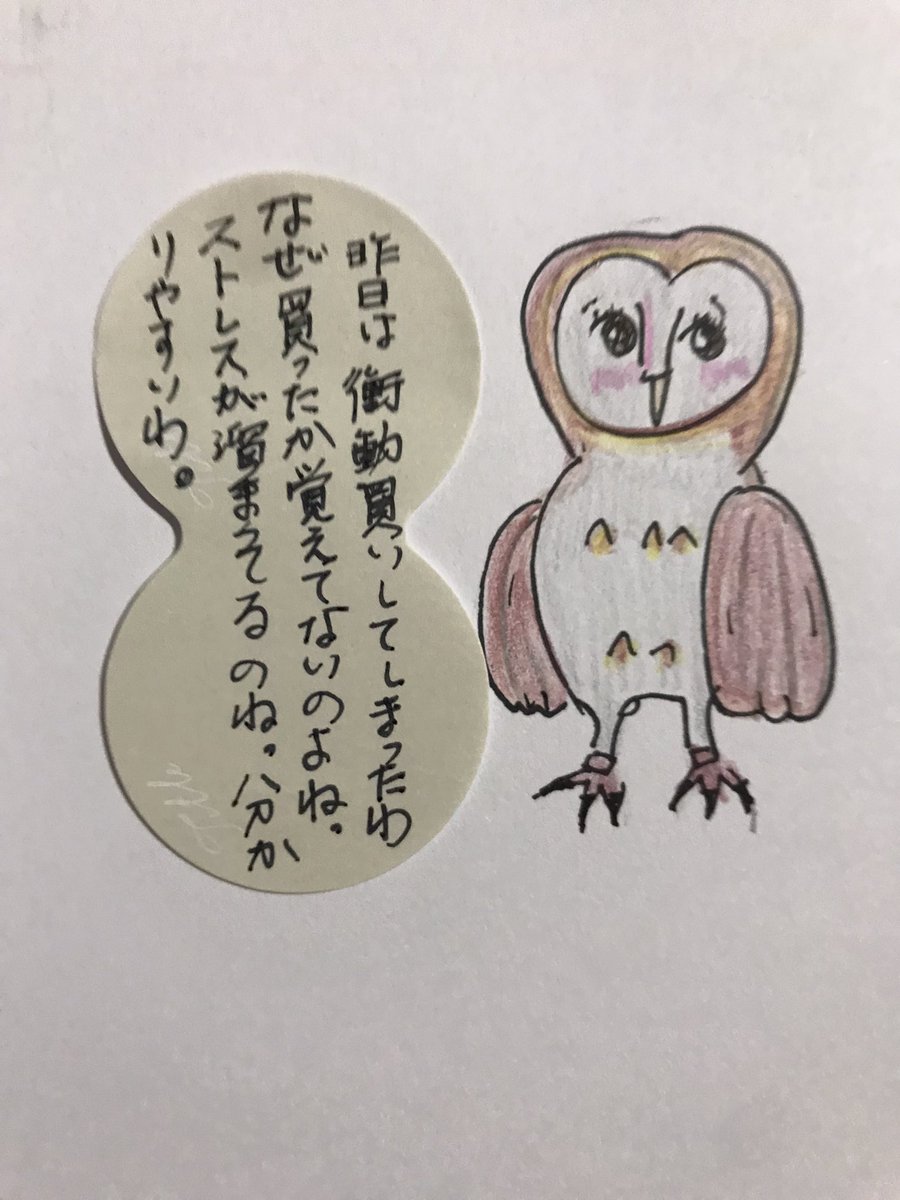 昨日は衝動買いしてしまったわ
なぜ買ったか覚えてないのよね。
ストレスが溜まってるのね。分か
りやすいわ。